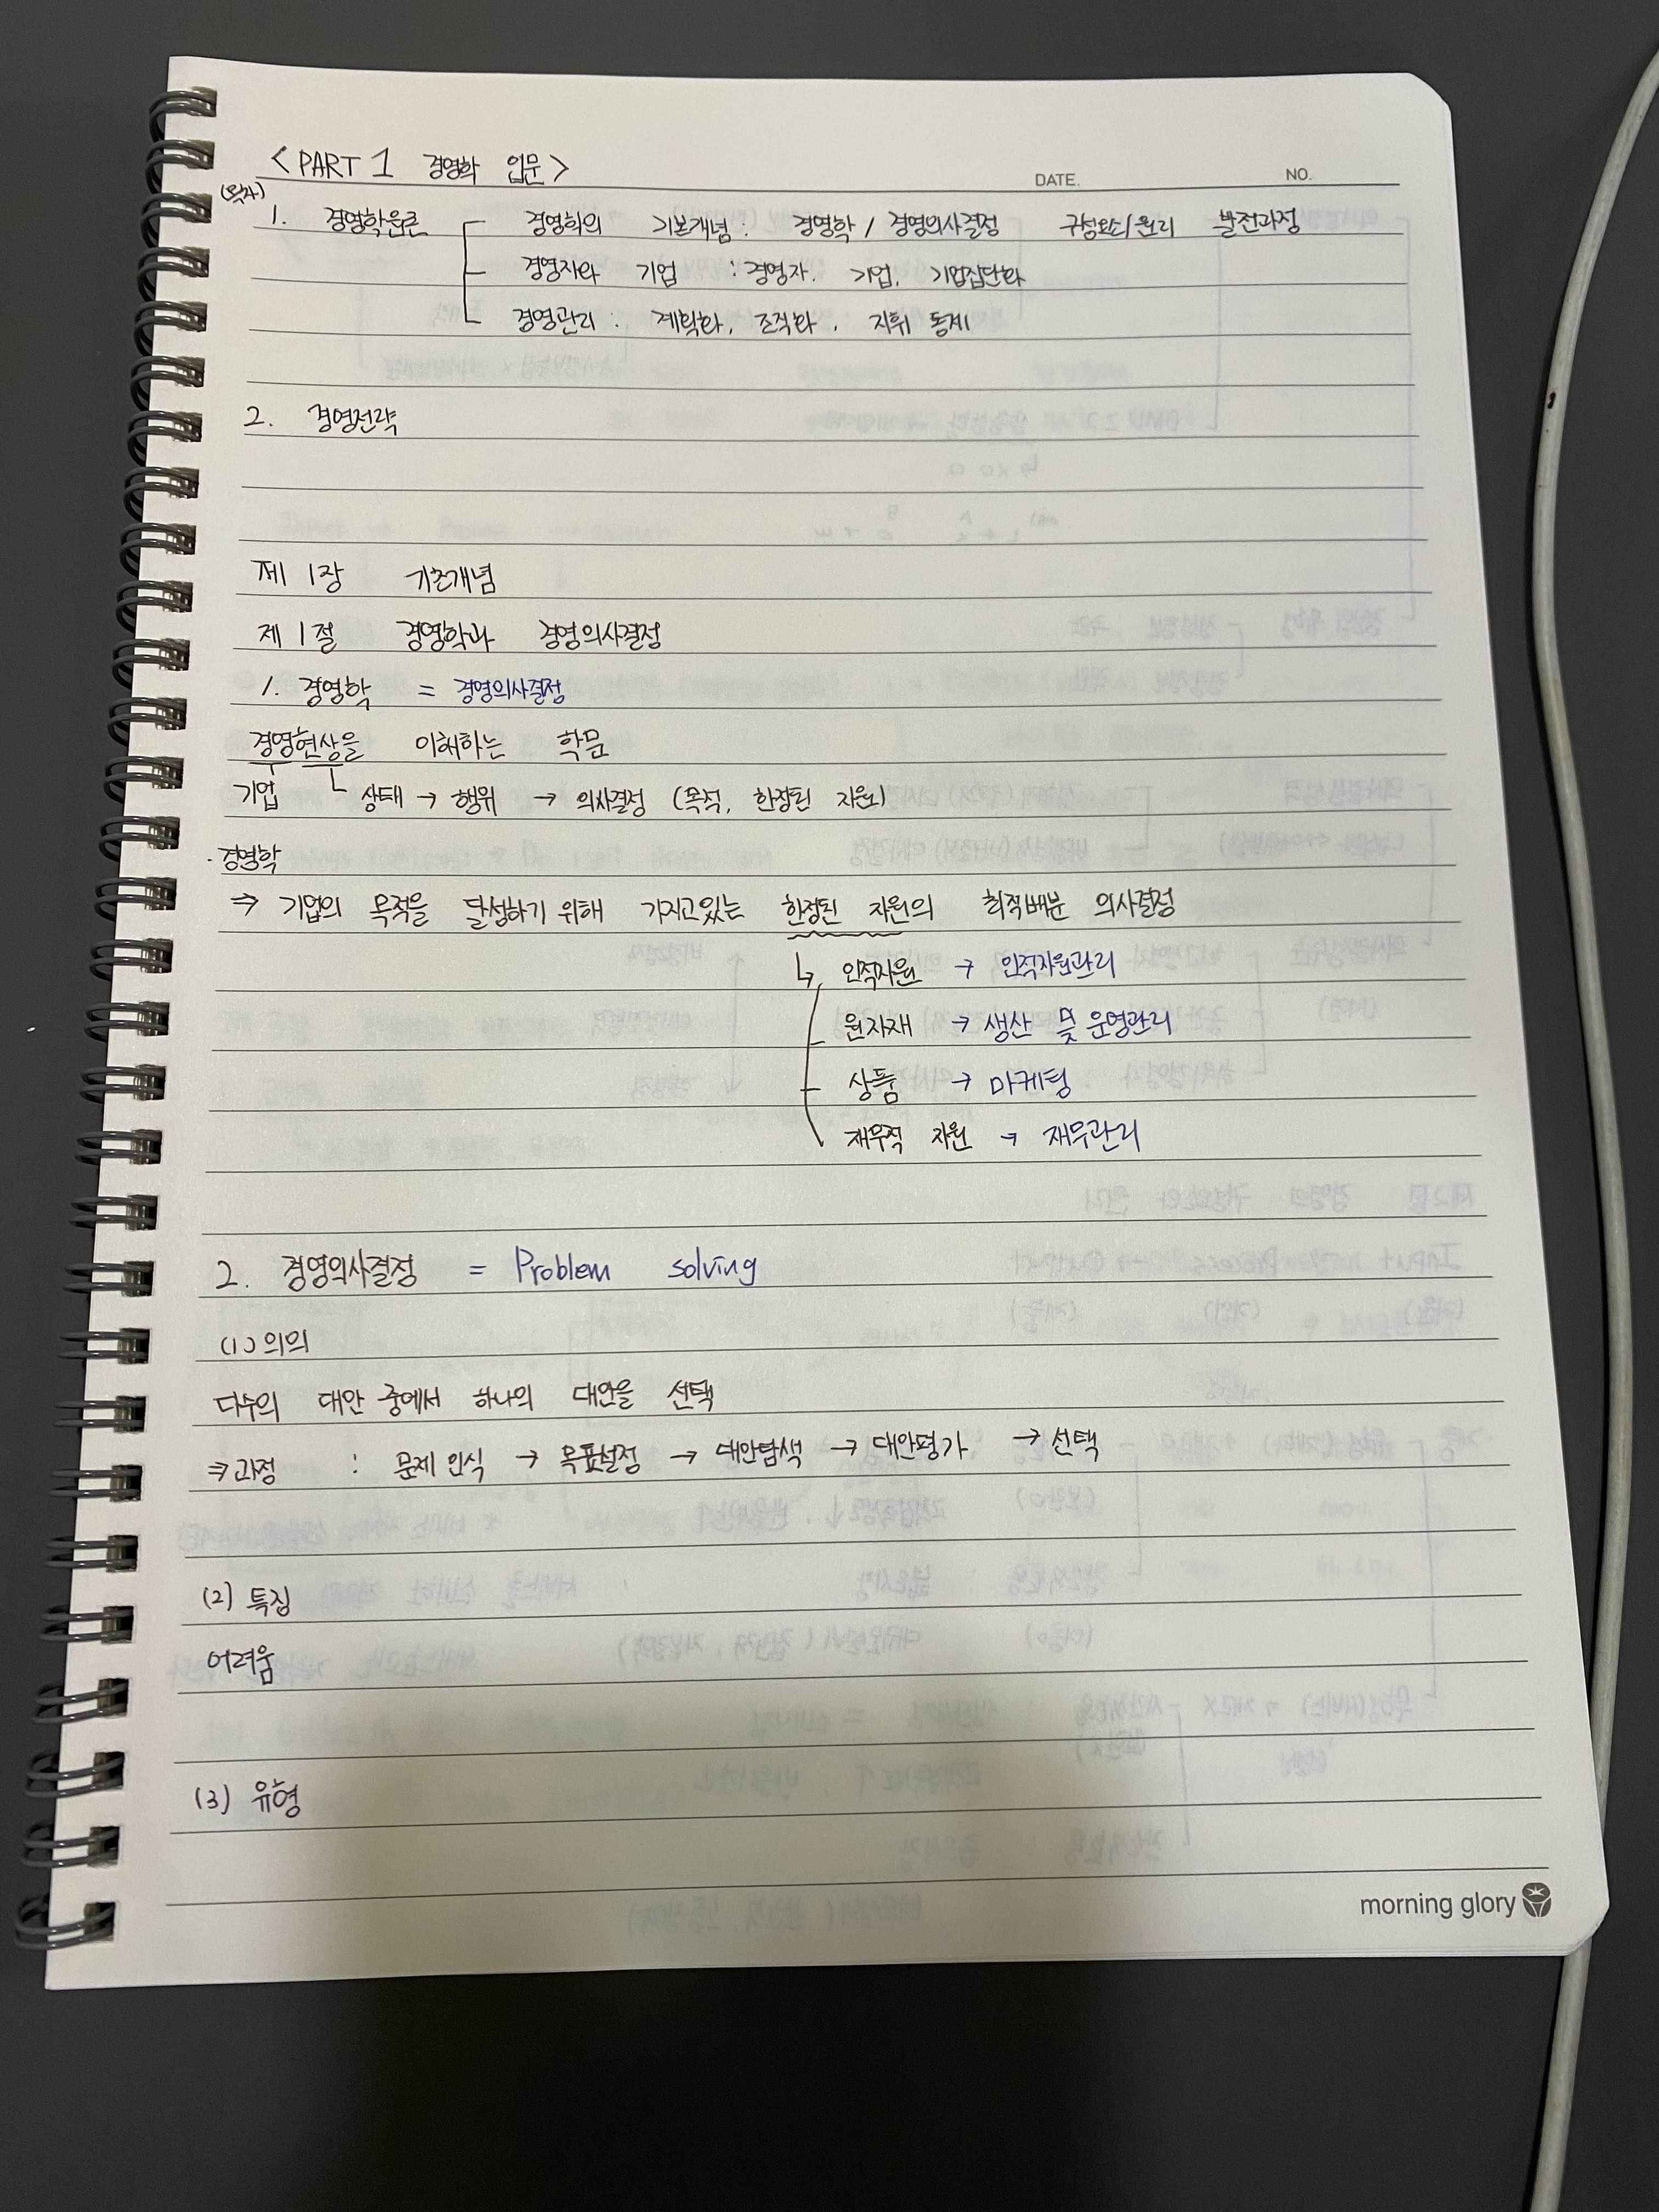 <PART 1 경영학 입문>
DATE. NO.
(목차)
1. 경영학원론 경영학의 기본개념 : 경영학 / 경영의사결정 구성요소/원리 발전과정
경영자와 기업 : 경영자, 기업, 기업집단화
경영관리 : 계획화, 조직화, 지휘 통제
2. 경영전략
제 1장 기초개념
제 1절 경영학과 경영의사결정
1. 경영학 = 경영의사결정
경영현상을 이해하는 학문
기업 상태 → 행위 → 의사결정 (목적, 한정된 자원)
· 경영학
⇒ 기업의 목적을 달성하기 위해 가지고있는 한정된 자원의 최적배분 의사결정
↳ 인적자원 → 인적자원관리
원자재 → 생산 및 운영관리
상품 → 마케팅
재무적 자원 → 재무관리
2. 경영의사결정 = Problem solving
(1) 의의
다수의 대안 중에서 하나의 대안을 선택
⇒ 과정 : 문제 인식 → 목표설정 → 대안탐색 → 대안평가 → 선택
(2) 특징
어려움
(3) 유형
morning glory